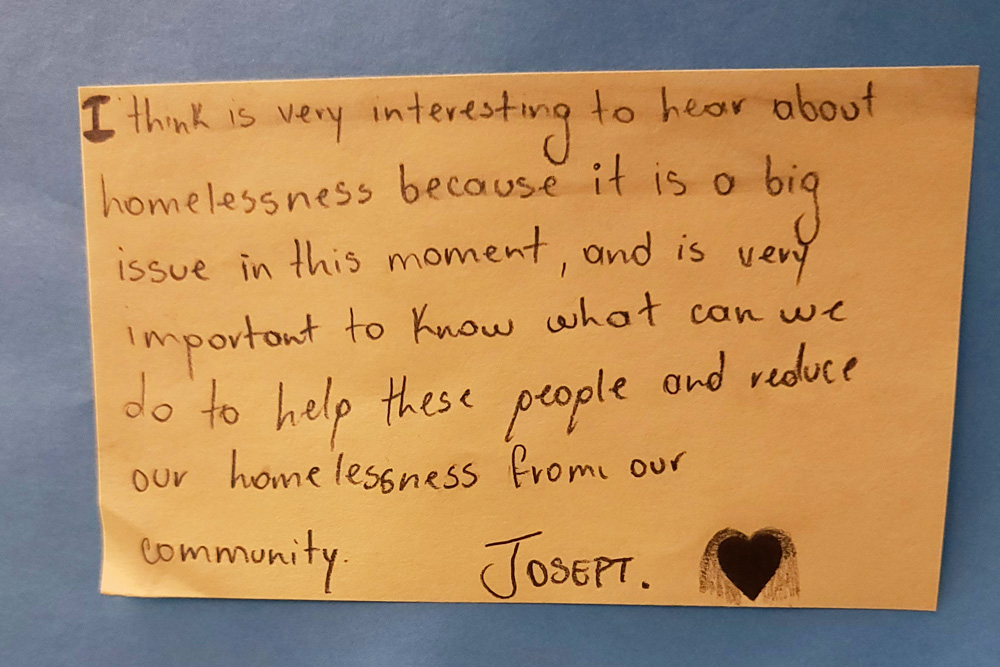 I think is very interesting to hear about
homelessness because it is a big
issue in this moment, and is very
important to know what can we
do to help these people and reduce
our homelessness from our
community. JOSEPT.